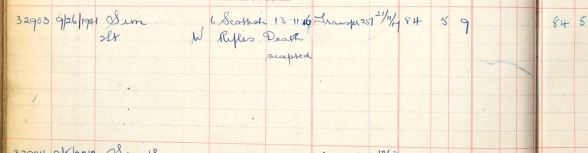 32903 9/26/1921 Sim 6 Scottish 13-11-16 Transfer 357 21/11/17 84 5 9 84 5
2Lt W Rifles Death
accepted